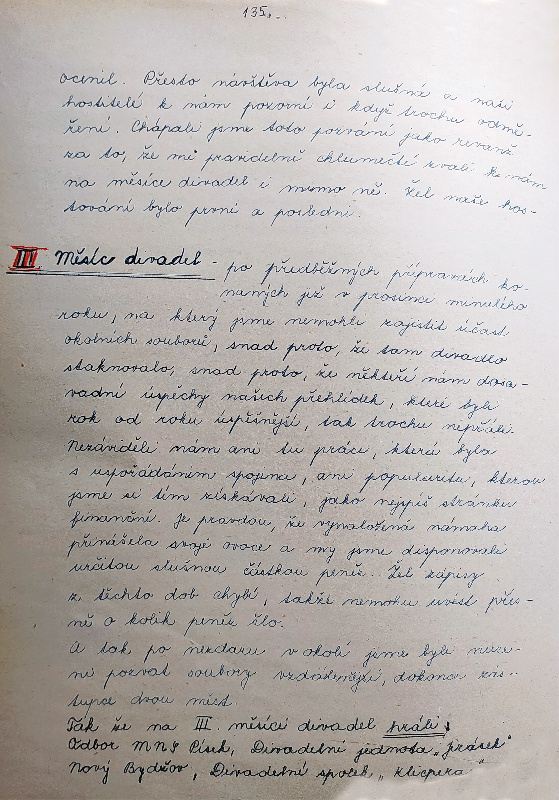 135.
ocenil. Přesto návštěva byla slušná a naši
hostitelé k nám pozorní i když trochu odmě-
ření. Chápali jsme toto pozvání jako revanž
za to, že mi pravidelně chlumečtě zvali k nám
na měsíce divadel i mimo ně. Žel naše hos-
tování bylo první a poslední.
III Měsíc divadel - po předběžných přípravách ko-
naných již v prosinci minulého
roku, na který jsme nemohli zajistit účast
okolních souborů, snad proto, že tam divadlo
stagnovalo, snad proto, že někteří nám dosa-
vadní úspěchy našich přehlídek, které byli
rok od roku úspěšnější, tak trochu nepřáli.
Nezáviděli nám ani tu práci, která byla
s uspořádáním spojena, ani popularitu, kterou
jsme si tím získávali, jako nejspíš stránku
finanční. Je pravdou, že vynaložená námaha
přinášela svoje ovoce a my jsme disponovali
určitou slušnou částkou peněz. Žel zápisy
z těchto dob chybí, takže nemohu uvést přes-
ně o kolik peněz šlo.
A tak po nezdaru v okolí jsme byli nuce-
ni pozvat soubory vzdálenější, dokonce zás-
tupce dvou měst.
Tak že na III. měsíci divadel hráli:
Odbor MNS Písek, Divadelní jednota "Jirásek"
Nový Bydžov, Divadelní spolek "Klicpera"